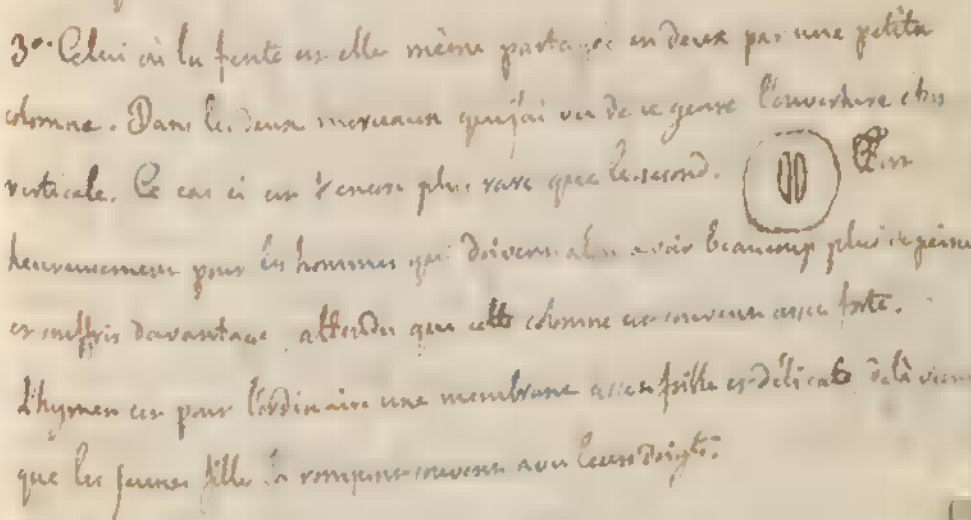 3º. Celui où la fente est elle même partagée en deux par une petite
colonne. Dans les deux morceaux que j'ai vu de ce genre l'ouverture étais
verticale. Ce cas ci est encore plus rare que le second.
heureusement pour les hommes qui doivent alors avoir beaucoup plus de peine
et souffrir davantage, attendu que cette colonne est souvent assez forte.
L'hymen est pour l'ordinaire une membrane assez faible et délicate delà vient
que les jeunes filles la rompent souvent avec leurs doigts.